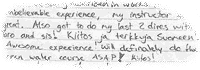 unbelievable experience, my instructor
great. Also got to do my last 2 dives with
bro and sis! Kiitos ja terkkuja Suomeen
Awesome experience will definately do
open water course ASAP! Aidos!